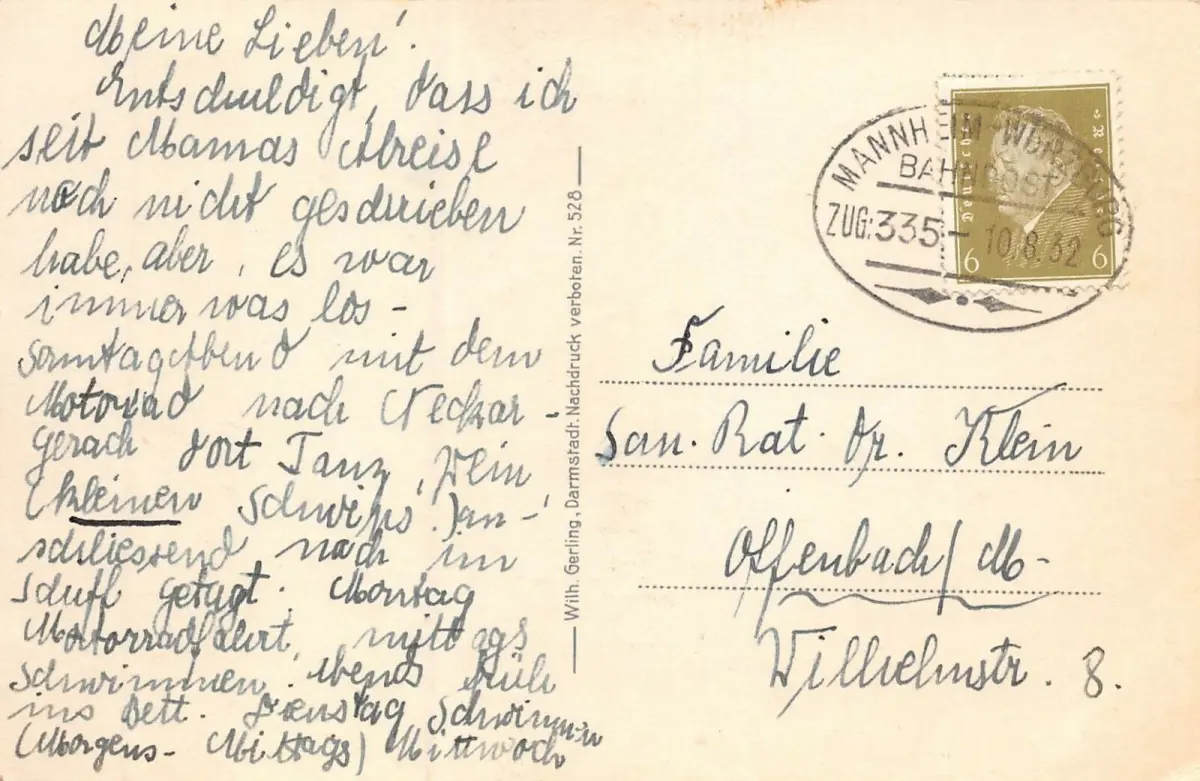 Meine Lieben!
Entschuldigt, dass ich
seit Mamas Abreise
noch nicht geschrieben
habe, aber, es war
immer was los -
Sonntagabend mit dem
Motorrad nach Neckar-
gerach dort Tanz, Wein,
(kleinen Schwips!) an-
schliessend noch im
Schiff getagt. Montag
Motorradfahrt, mittags
schwimmen. abends früh
ins Bett. Dienstag Schwimmen
(Morgens - Mittags) Mittwoch
Wilh. Gerling, Darmstadt. Nachdruck verboten. Nr. 528
MANNHEIM-WÜRZBURG
BAHNPOST
ZUG:335 - 10.8.32
Deutsches Reich
6 6
Familie
San. Rat. Dr. Klein
Offenbach/M-
Wilhelmstr. 8.